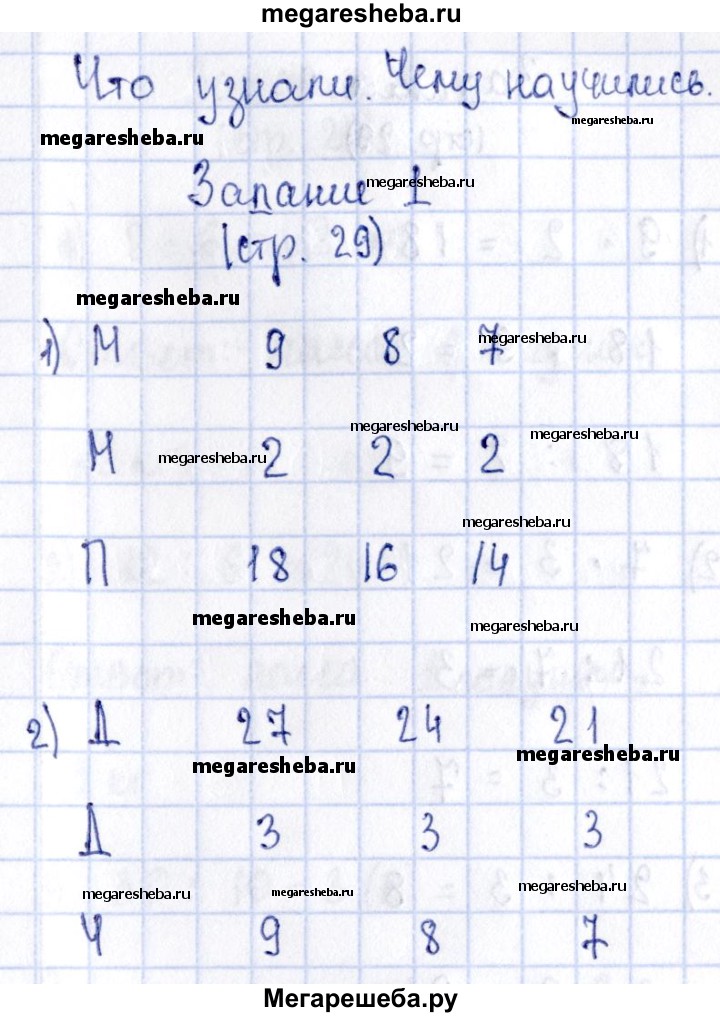 megaresheba.ru
Что узнали. Чему научились.
megaresheba.ru
megaresheba.ru
Задание 1
megaresheba.ru
(стр. 29)
megaresheba.ru
1) М 9 8 7
megaresheba.ru
М 2 2 2
megaresheba.ru
megaresheba.ru
megaresheba.ru
megaresheba.ru
П 18 16 14
megaresheba.ru
megaresheba.ru
2) Д 27 24 21
megaresheba.ru
megaresheba.ru
Д 3 3 3
megaresheba.ru
megaresheba.ru
megaresheba.ru
Ч 9 8 7
Мегарешеба.ру